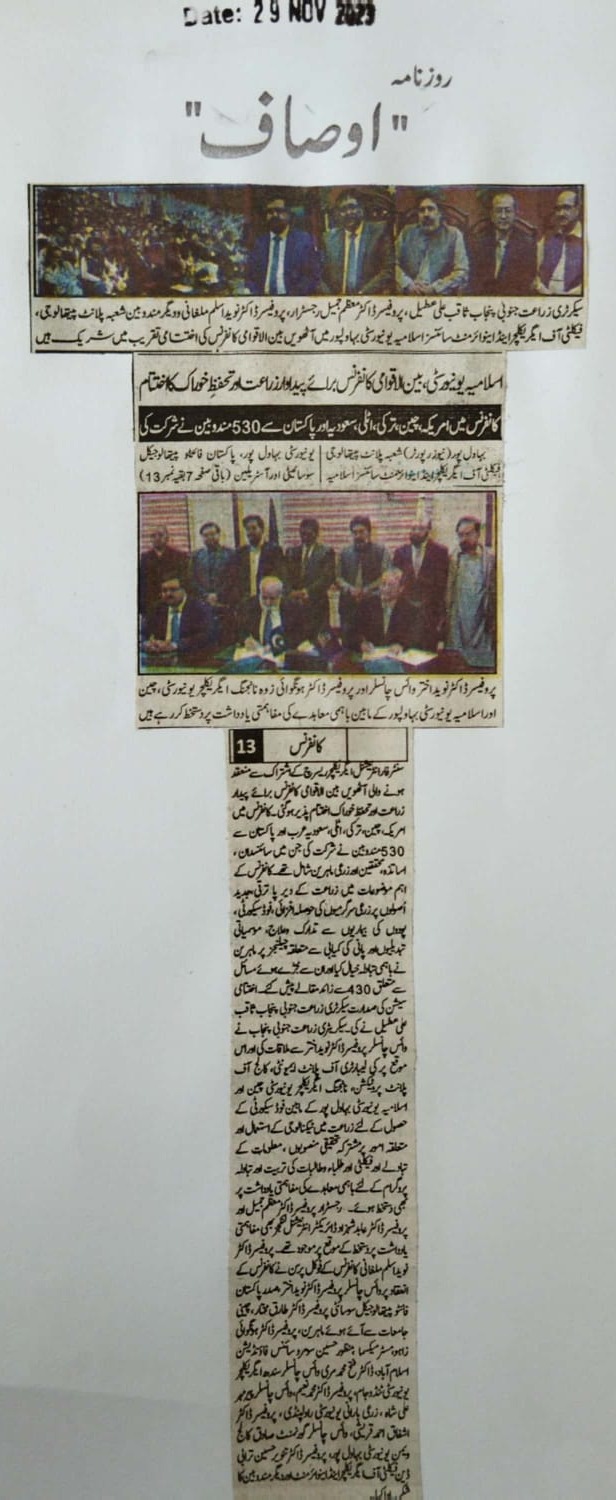 Date: 29 NOV 2023
روزنامہ
"اوصاف"
سیکرٹری زراعت جنوبی پنجاب ثاقب علی عطیل، پروفیسر ڈاکٹر معظم جمیل رجسٹرار، پروفیسر ڈاکٹر نوید اسلم ملغانی و دیگر مندوبین شعبہ پلانٹ پیتھالوجی،
فیکلٹی آف ایگریکلچر اینڈ انوائرمنٹ سائنسز اسلامیہ یونیورسٹی بہاولپور میں آٹھویں بین الاقوامی کانفرنس کی اختتامی تقریب میں شریک ہیں
اسلامیہ یونیورسٹی، بین الاقوامی کانفرنس برائے پیداوار زراعت اور تحفظ خوراک کا اختتام
کانفرنس میں امریکہ، چین، ترکی، اٹلی، سعودیہ اور پاکستان سے 530 مندوبین نے شرکت کی
بہاول پور (نیوز رپورٹر) شعبہ پلانٹ پیتھالوجی
فیکلٹی آف ایگریکلچر اینڈ انوائرمنٹ سائنسز اسلامیہ
یونیورسٹی بہاول پور، پاکستان فائٹو پیتھالوجیکل
سوسائٹی اور آسٹریلین (باقی صفحہ 7 بقیہ نمبر 13)
پروفیسر ڈاکٹر نوید اختر وائس چانسلر اور پروفیسر ڈاکٹر ہونگوائی زوہ نانجنگ ایگریکلچر یونیورسٹی، چین
اور اسلامیہ یونیورسٹی بہاولپور کے مابین باہمی معاہدے کی مفاہمتی یادداشت پر دستخط کر رہے ہیں
13 کانفرنس
سنٹر فار انٹرنیشنل ایگریکلچر ریسرچ کے اشتراک سے منعقد
ہونے والی آٹھویں بین الاقوامی کانفرنس برائے پیدار
زراعت اور تحفظ خوراک اختتام پذیر ہوگئی۔ کانفرنس میں
امریکہ، چین، ترکی، اٹلی، سعودیہ عرب اور پاکستان سے
530 مندوبین نے شرکت کی جن میں سائنسدان،
اساتذہ، محققین اور زرعی ماہرین شامل تھے۔ کانفرنس کے
اہم موضوعات میں زراعت کے دیر پا ترقی، جدید
اصولوں پر زرعی سرگرمیوں کی حوصلہ افزائی، فوڈ سیکورٹی،
پودوں کی بیماریوں سے تدارک و علاج، موسمیاتی
تبدیلیوں اور پانی کی کمیابی سے متعلقہ چیلنجز پر ماہرین
نے باہمی تبادلہ خیال کیا اور ان سے جڑے ہوئے مسائل
سے متعلق 430 سے زائد مقالے پیش کئے۔ اختتامی
سیشن کی صدارت سیکرٹری زراعت جنوبی پنجاب ثاقب
علی عطیل نے کی۔ سیکریٹری زراعت جنوبی پنجاب نے
وائس چانسلر پروفیسر ڈاکٹر نوید اختر سے ملاقات کی اور اس
موقع پر کی لیبارٹری آف پلانٹ ایمونٹی، کالج آف
پلانٹ پروٹیکشن، نانجنگ ایگریکلچر یونیورسٹی چین اور
اسلامیہ یونیورسٹی بہاول پور کے مابین فوڈ سیکورٹی کے
حصول کے لئے زراعت میں ٹیکنالوجی کے استعمال اور
متعلقہ امور پر مشترکہ تحقیقی منصوبوں، معلومات کے
تبادلے اور فیکلٹی اور طلباء و طالبات کی تربیت اور تبادلہ
پروگرام کے لئے باہمی معاہدے کی مفاہمتی یادداشت پر
بھی دستخط ہوئے۔ رجسٹرار پروفیسر ڈاکٹر معظم جمیل اور
پروفیسر ڈاکٹر عابد شہزاد ڈائریکٹر انٹرنیشنل لنکجز بھی مفاہمتی
یادداشت پر دستخط کے موقع پر موجود تھے۔ پروفیسر ڈاکٹر
نوید اسلم ملغانی کانفرنس کے فوکل پرسن نے کانفرنس کے
انعقاد پر وائس چانسلر پروفیسر ڈاکٹر نوید اختر، صدر پاکستان
فائٹو پیتھالوجیکل سوسائٹی پروفیسر ڈاکٹر طارق مختار، چینی
جامعات سے آئے ہوئے ماہرین، پروفیسر ڈاکٹر ہونگوائی
زاہو، مسٹر میکسا، منظور حسین سومرو سائنس فاؤنڈیشن
اسلام آباد، ڈاکٹر فتح محمد مری وائس چانسلر سندھ ایگریکلچر
یونیورسٹی ٹنڈو جام، پروفیسر ڈاکٹر محمد نعیم، وائس چانسلر پیر مہر
علی شاہ، زرعی بارانی یونیورسٹی راولپنڈی، پروفیسر ڈاکٹر
اشفاق احمد قریشی، وائس چانسلر گورنمنٹ صادق کالج
ویمن یونیورسٹی بہاول پور، پروفیسر ڈاکٹر تنویر حسین ترابی
ڈین فیکلٹی آف ایگریکلچر اینڈ انوائرمنٹ اور دیگر مندوبین کا
شکریہ ادا کیا۔